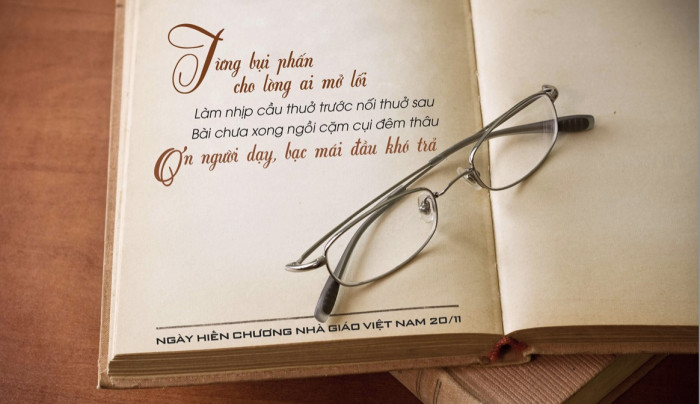 Từng bụi phấn
cho lòng ai mở lối
Làm nhịp cầu thuở trước nối thuở sau
Bài chưa xong ngồi cặm cụi đêm thâu
Ơn người dạy, bạc mái đầu khó trả
NGÀY HIẾN CHƯƠNG NHÀ GIÁO VIỆT NAM 20/11